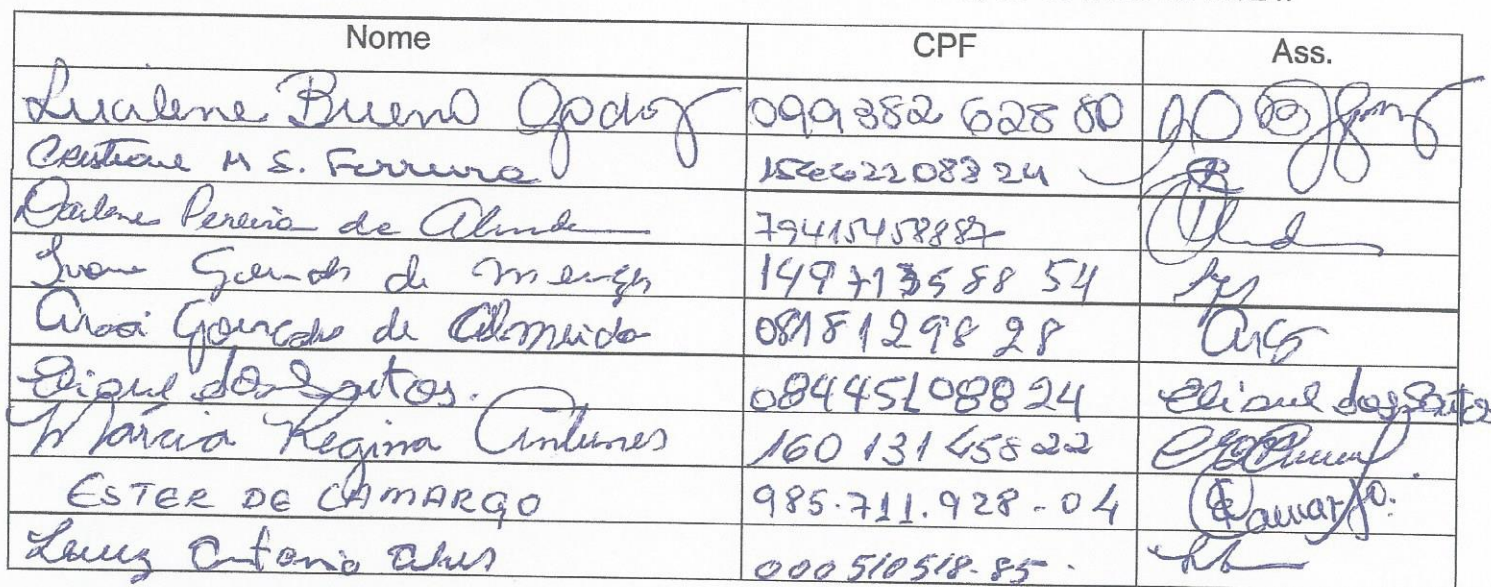 Nome CPF Ass.
Lucilene Bueno Godoy 099382 628 80
Cristiane M S. Ferreira
Darlene Pereira de Almeida 79415458887
de Menezes 149713588 54
Gonçalo de Almeida 08181298 28
dos Santos. 08445108824 dos Santos
Márcia Regina Antunes 160 131 458 22
ESTER DE CAMARGO 985.711.928-04 Camargo.
Luiz Antonio Alves 000510518-85.